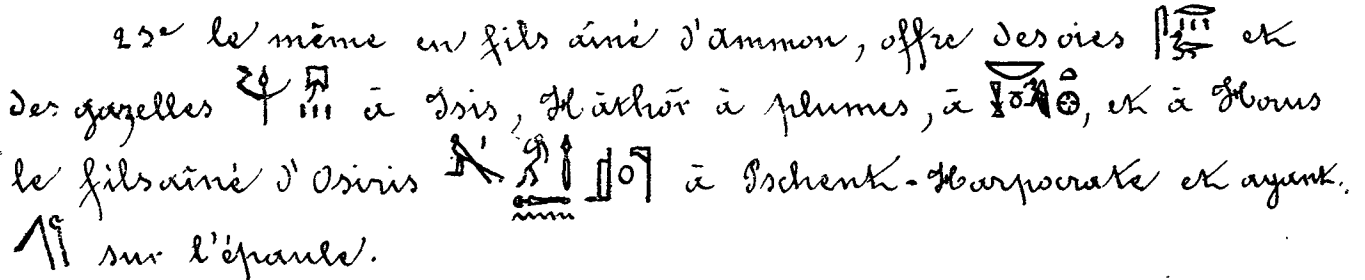 23e le même en fils ainé d'Ammon, offre des oies et
des gazelles à Isis, Hâthôr à plumes, à , et à Horus
le fils aîné d'Osiris à Pschent-Harpocrate et ayant
sur l'épaule.